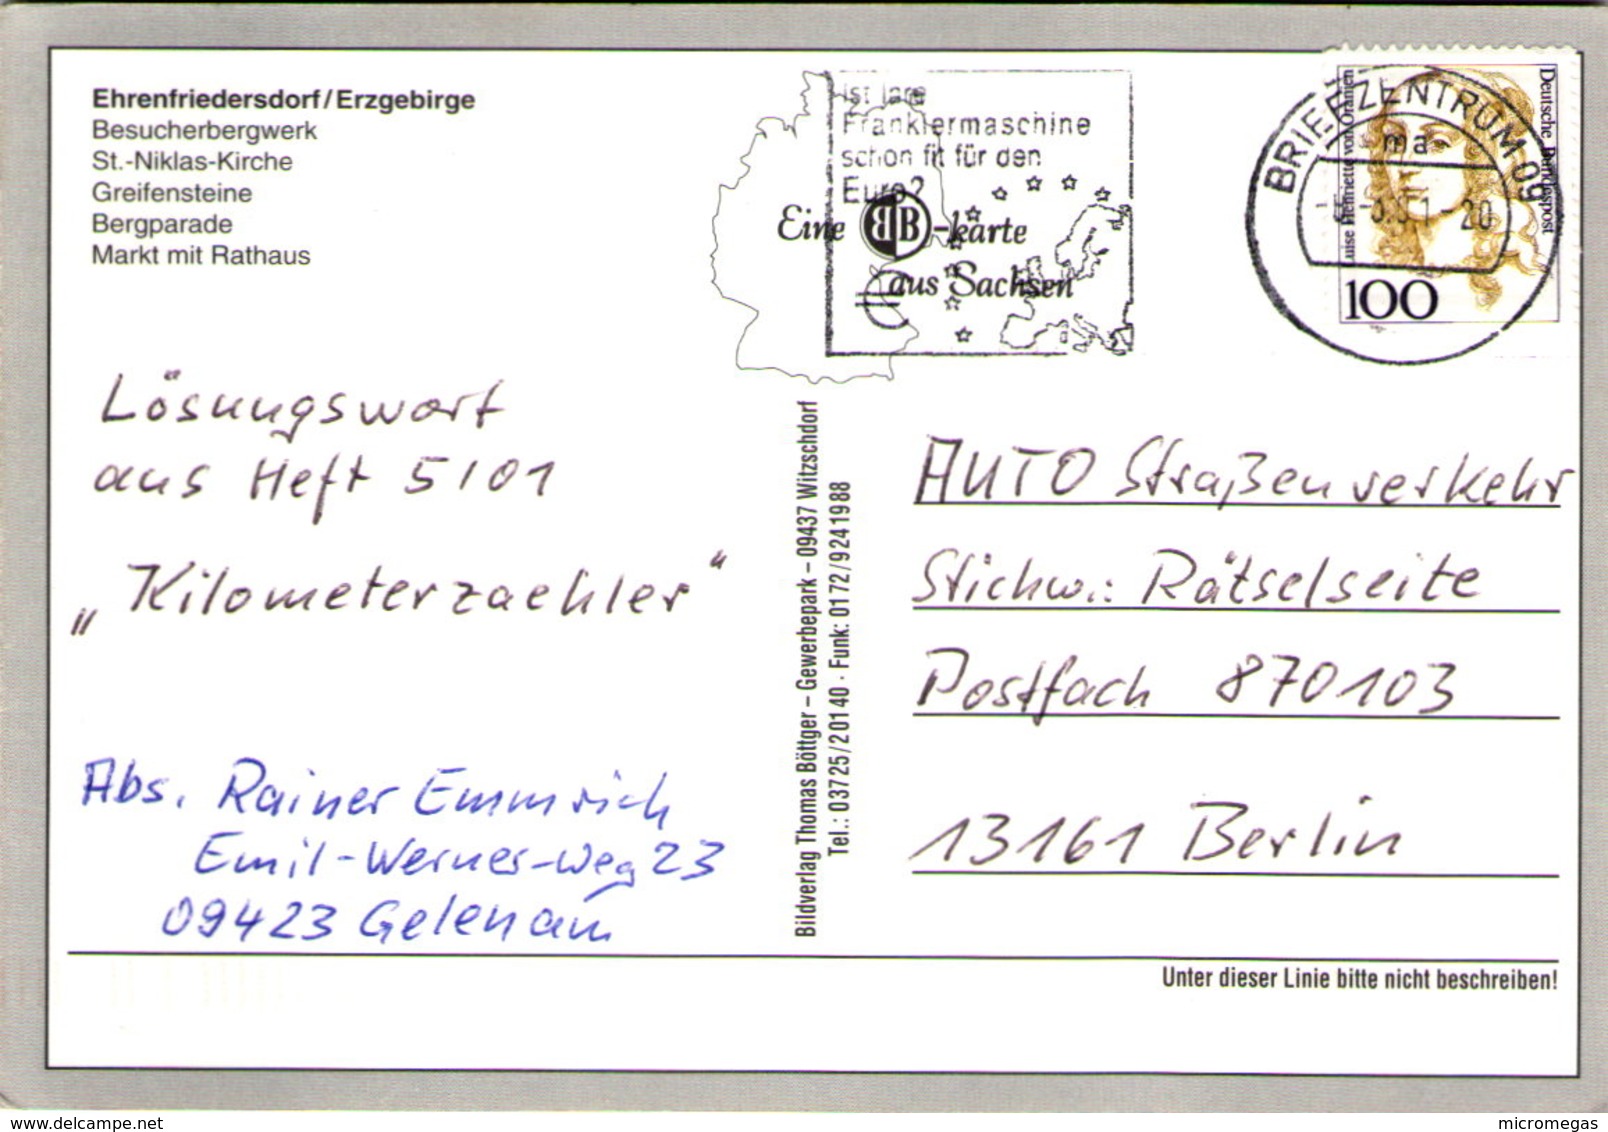 Ehrenfriedersdorf/Erzgebirge
Besucherbergwerk
St.-Niklas-Kirche
Greifensteine
Bergparade
Markt mit Rathaus
Ist
Frankiermaschine
schon fit für den
Euro?
Eine BB-karte
aus Sachsen
BRIEFZENTRUM 09
ma
Deutsche Bundespost
Luise Henriette von Oranien
100
Lösungswort
aus Heft 5/01
„Kilometerzaehler"
Abs. Rainer Emmrich
Emil-Werner-Weg 23
09423 Gelenau
Bildverlag Thomas Böttger – Gewerbepark – 09437 Witzschdorf
Tel.: 03725/20140 · Funk: 0172/9241988
AUTO Straßenverkehr
Stichw.: Rätselseite
Postfach 870103
13161 Berlin
Unter dieser Linie bitte nicht beschreiben!
www.delcampe.net
micromegas